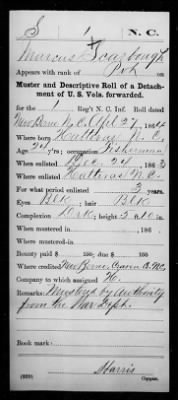 S 1 N. C.
Marcus Scarbough
Appears with rank of Pvt on
Muster and Descriptive Roll of a Detachment of U. S. Vols. forwarded.
for the 1 Reg't N. C. Inf. Roll dated
New Berne N.C. Apl 27, 1864
Where born Hatteras N.C.
Age 24 y'rs; occupation Fisherman
When enlisted Dec. 24, 1863
Where enlisted Hatteras N.C.
For what period enlisted 3 years.
Eyes Blk; hair Blk
Complexion Dark; height 5 ft. 10 in.
When mustered in , 186
Where mustered in
Bounty paid $ 100; due $ 100
Where credited New Berne Craven Co. N.C.
Company to which assigned H.
Remarks: Mustered by authority
from the War Dept.
Book mark:
Harris
(339) Copyist.